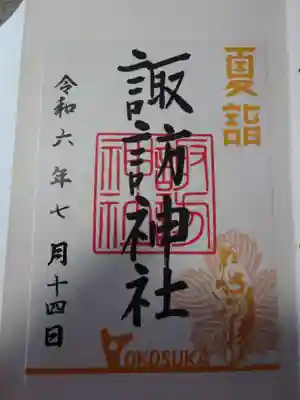 夏詣
諏訪神社
諏訪神社
令和六年七月十四日
YOKOSUKA